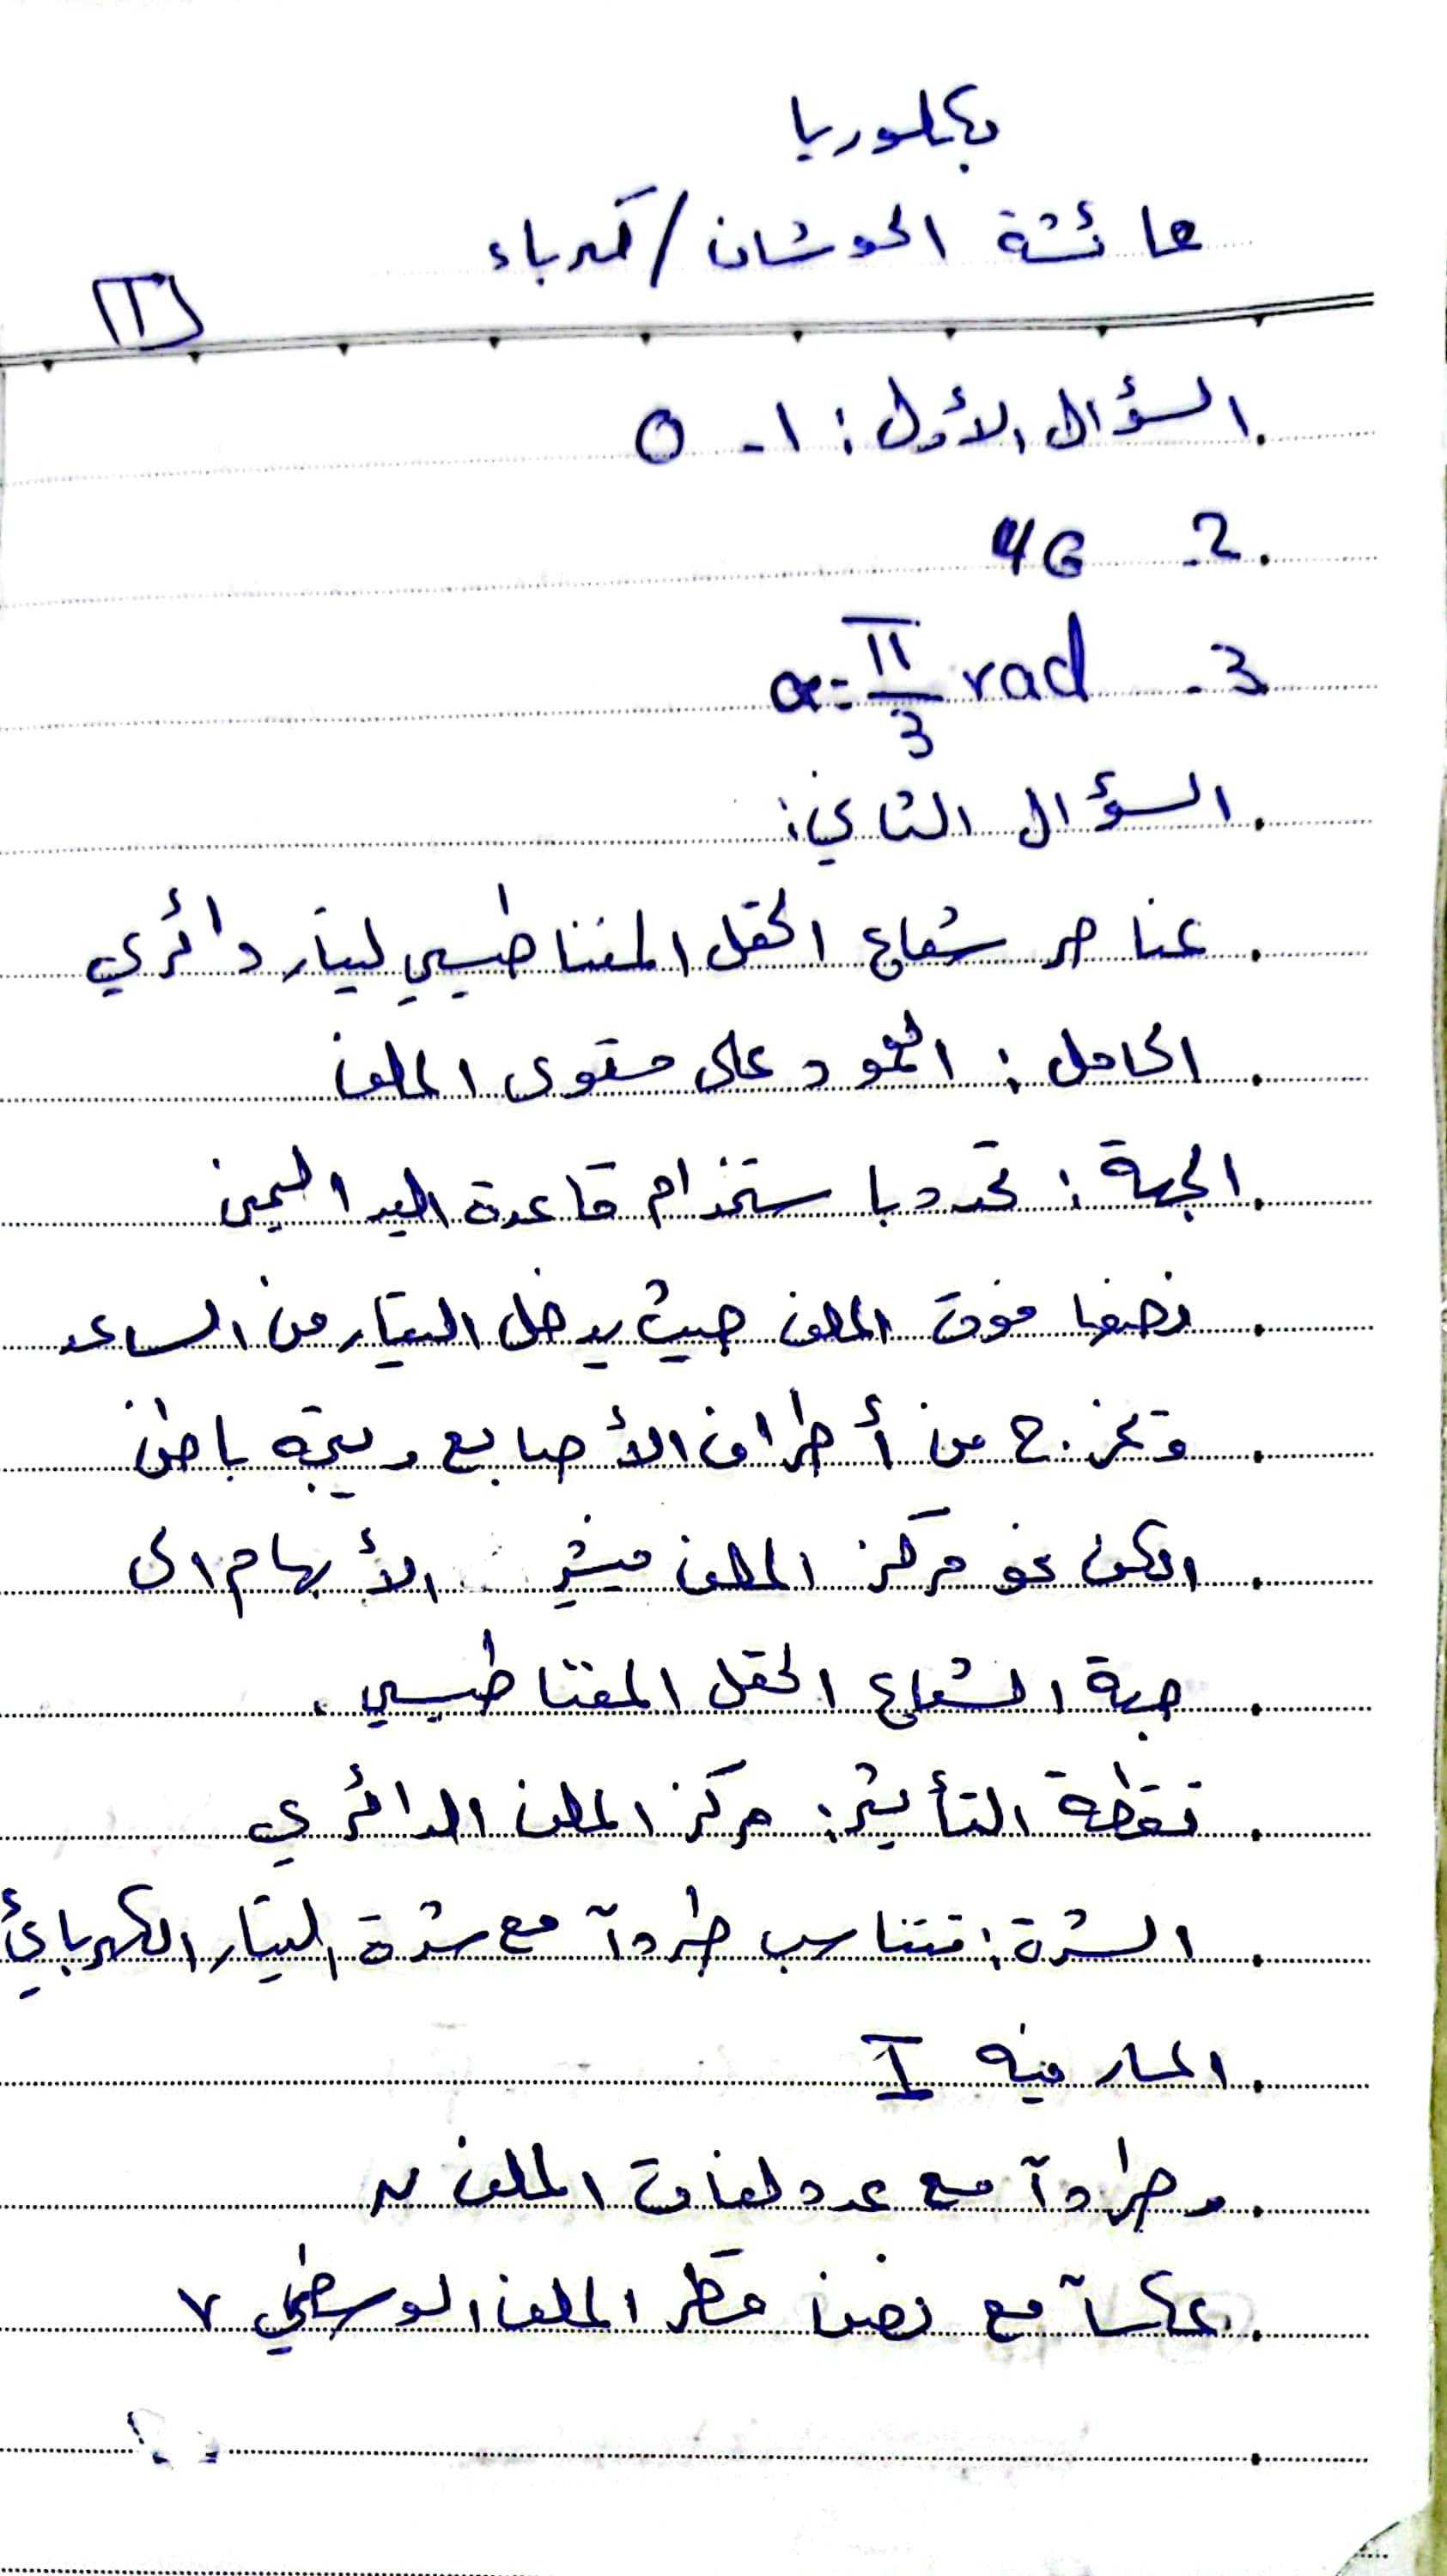 بكلوريا
عائشة الحوشان / كهرباء
السؤال الأول: 1- 0
2- 4G
3- α = π/3 rad
السؤال الثاني:
عناصر شعاع الحقل المغناطيسي لتيار دائري
الحامل: العمود على مستوى الملف
الجهة: تحدد باستخدام قاعدة اليد اليمنى
نضعها فوق الملف حيث يدخل التيار من الساعد
وتخرج من أطراف الأصابع ويتجه باطن
الكف نحو مركز الملف فيشير الأبهام الى
جهة الشعاع الحقل المغناطيسي.
نقطة التأثير: مركز الملف الدائري
الشدة: تتناسب طرداً مع شدة التيار الكهربائي
المار فيه I
وطرداً مع عدد لفات الملف N
عكساً مع نصف قطر الملف الوسطي r